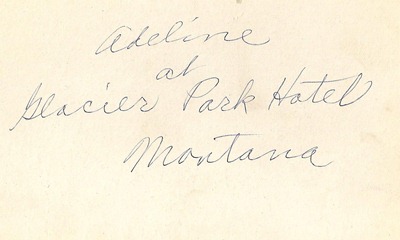 Adeline
at
Glacier Park Hotel
Montana